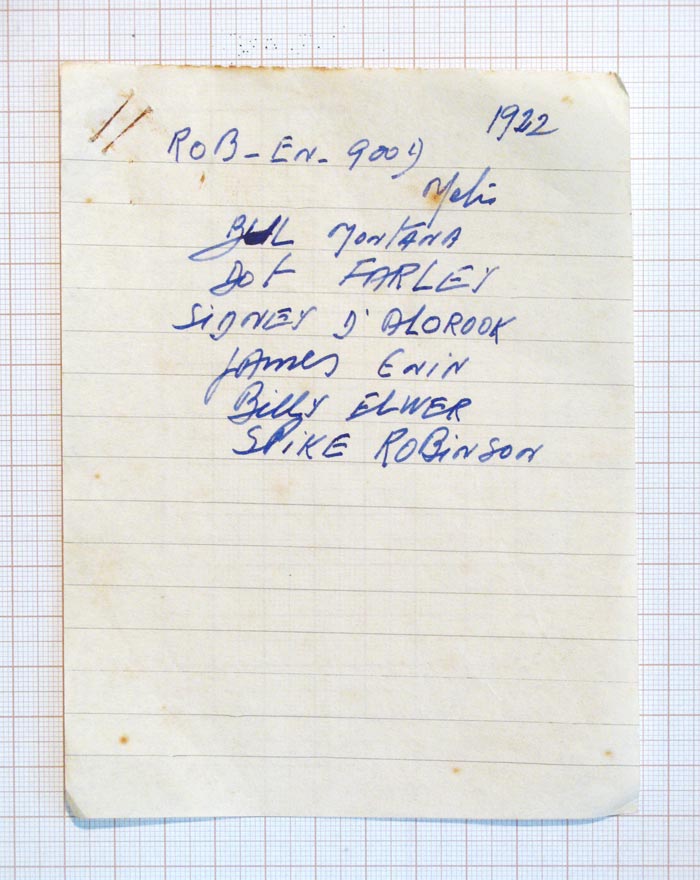 1922
ROB-EN-good
Metro
BULL MONTANA
DOT FARLEY
SiDNEY D'ALBROOK
JAMES
Billy ELMER
SPiKE ROBiNSON